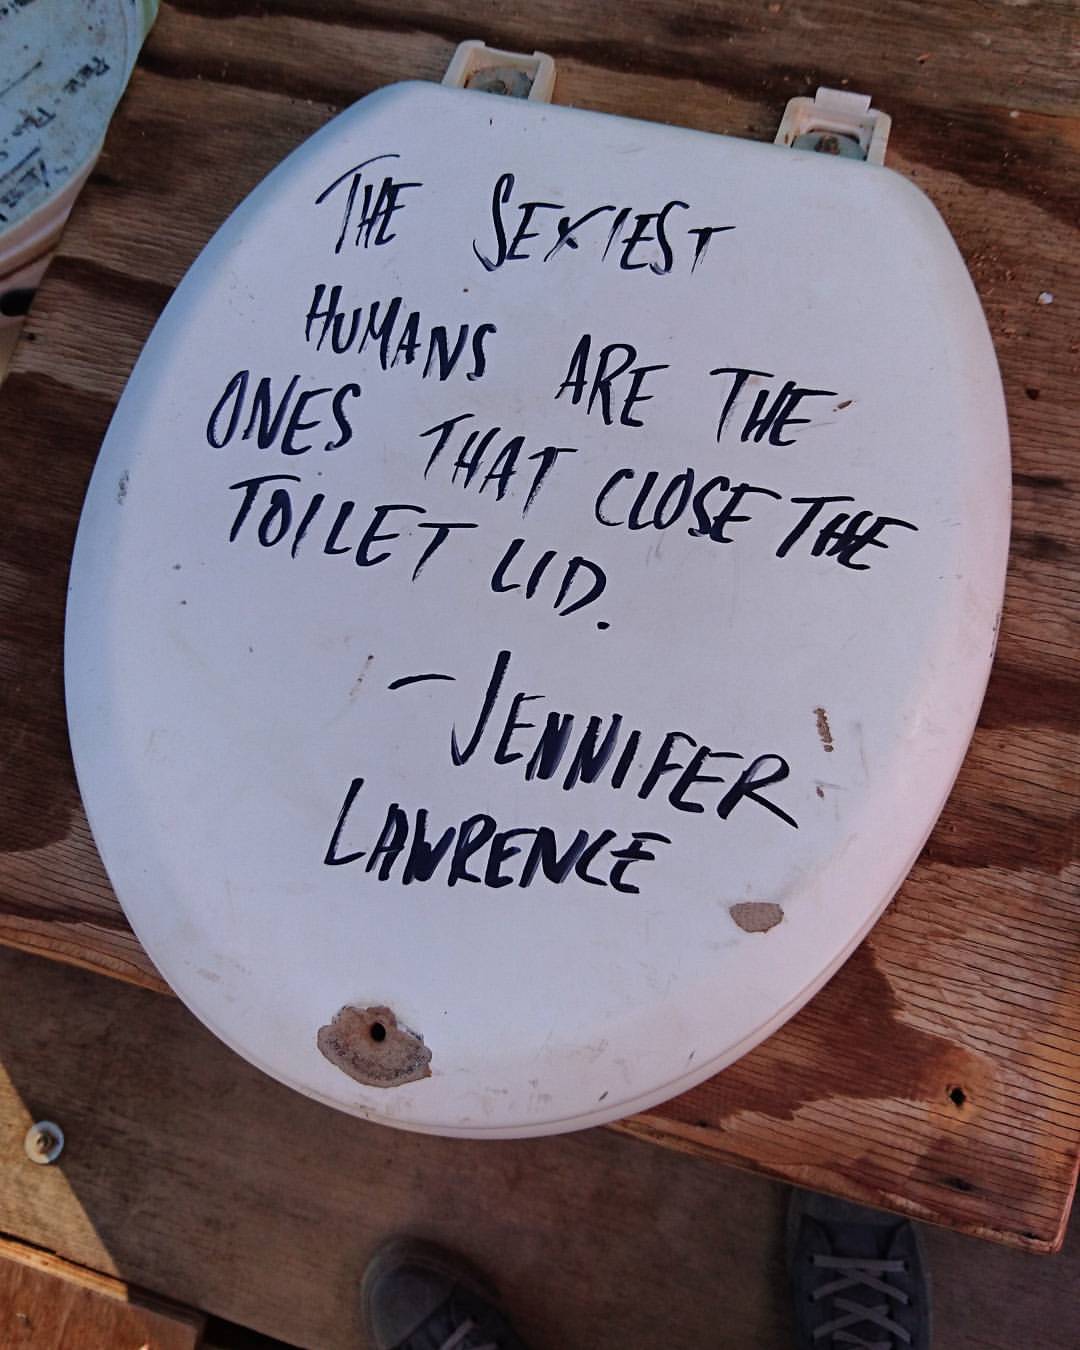 THE SEXIEST
HUMANS ARE THE
ONES THAT CLOSE THE
TOILET LID.
— JENNIFER
LAWRENCE